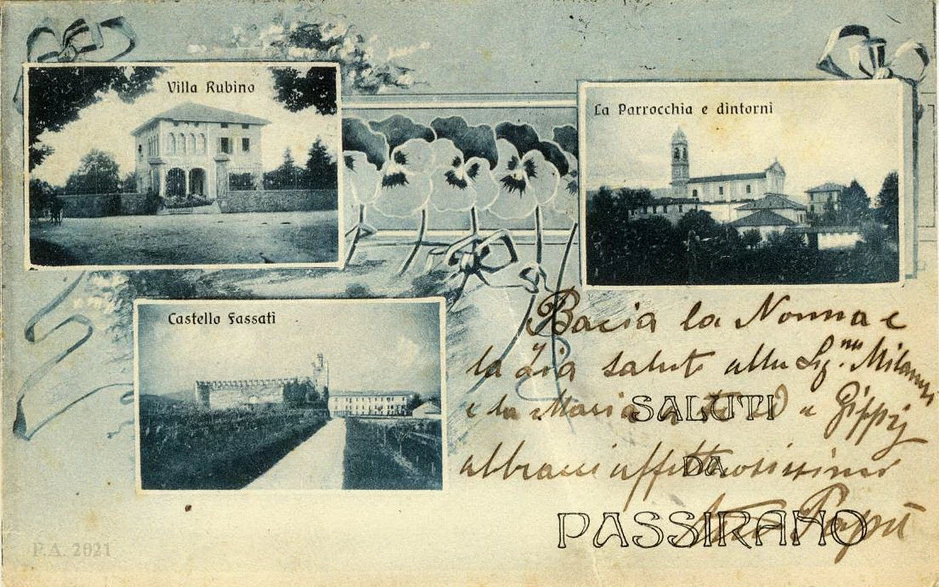 Villa Rubino
La Parrocchia e dintorni
Castello Fassati
Bacia la Nonna e
la Zia saluti alla Sig.na Milanesi
e la Maria e Gippij
abbracci affettuosissimi
Papà
SALUTI
DA
PASSIRANO
P.A. 2021